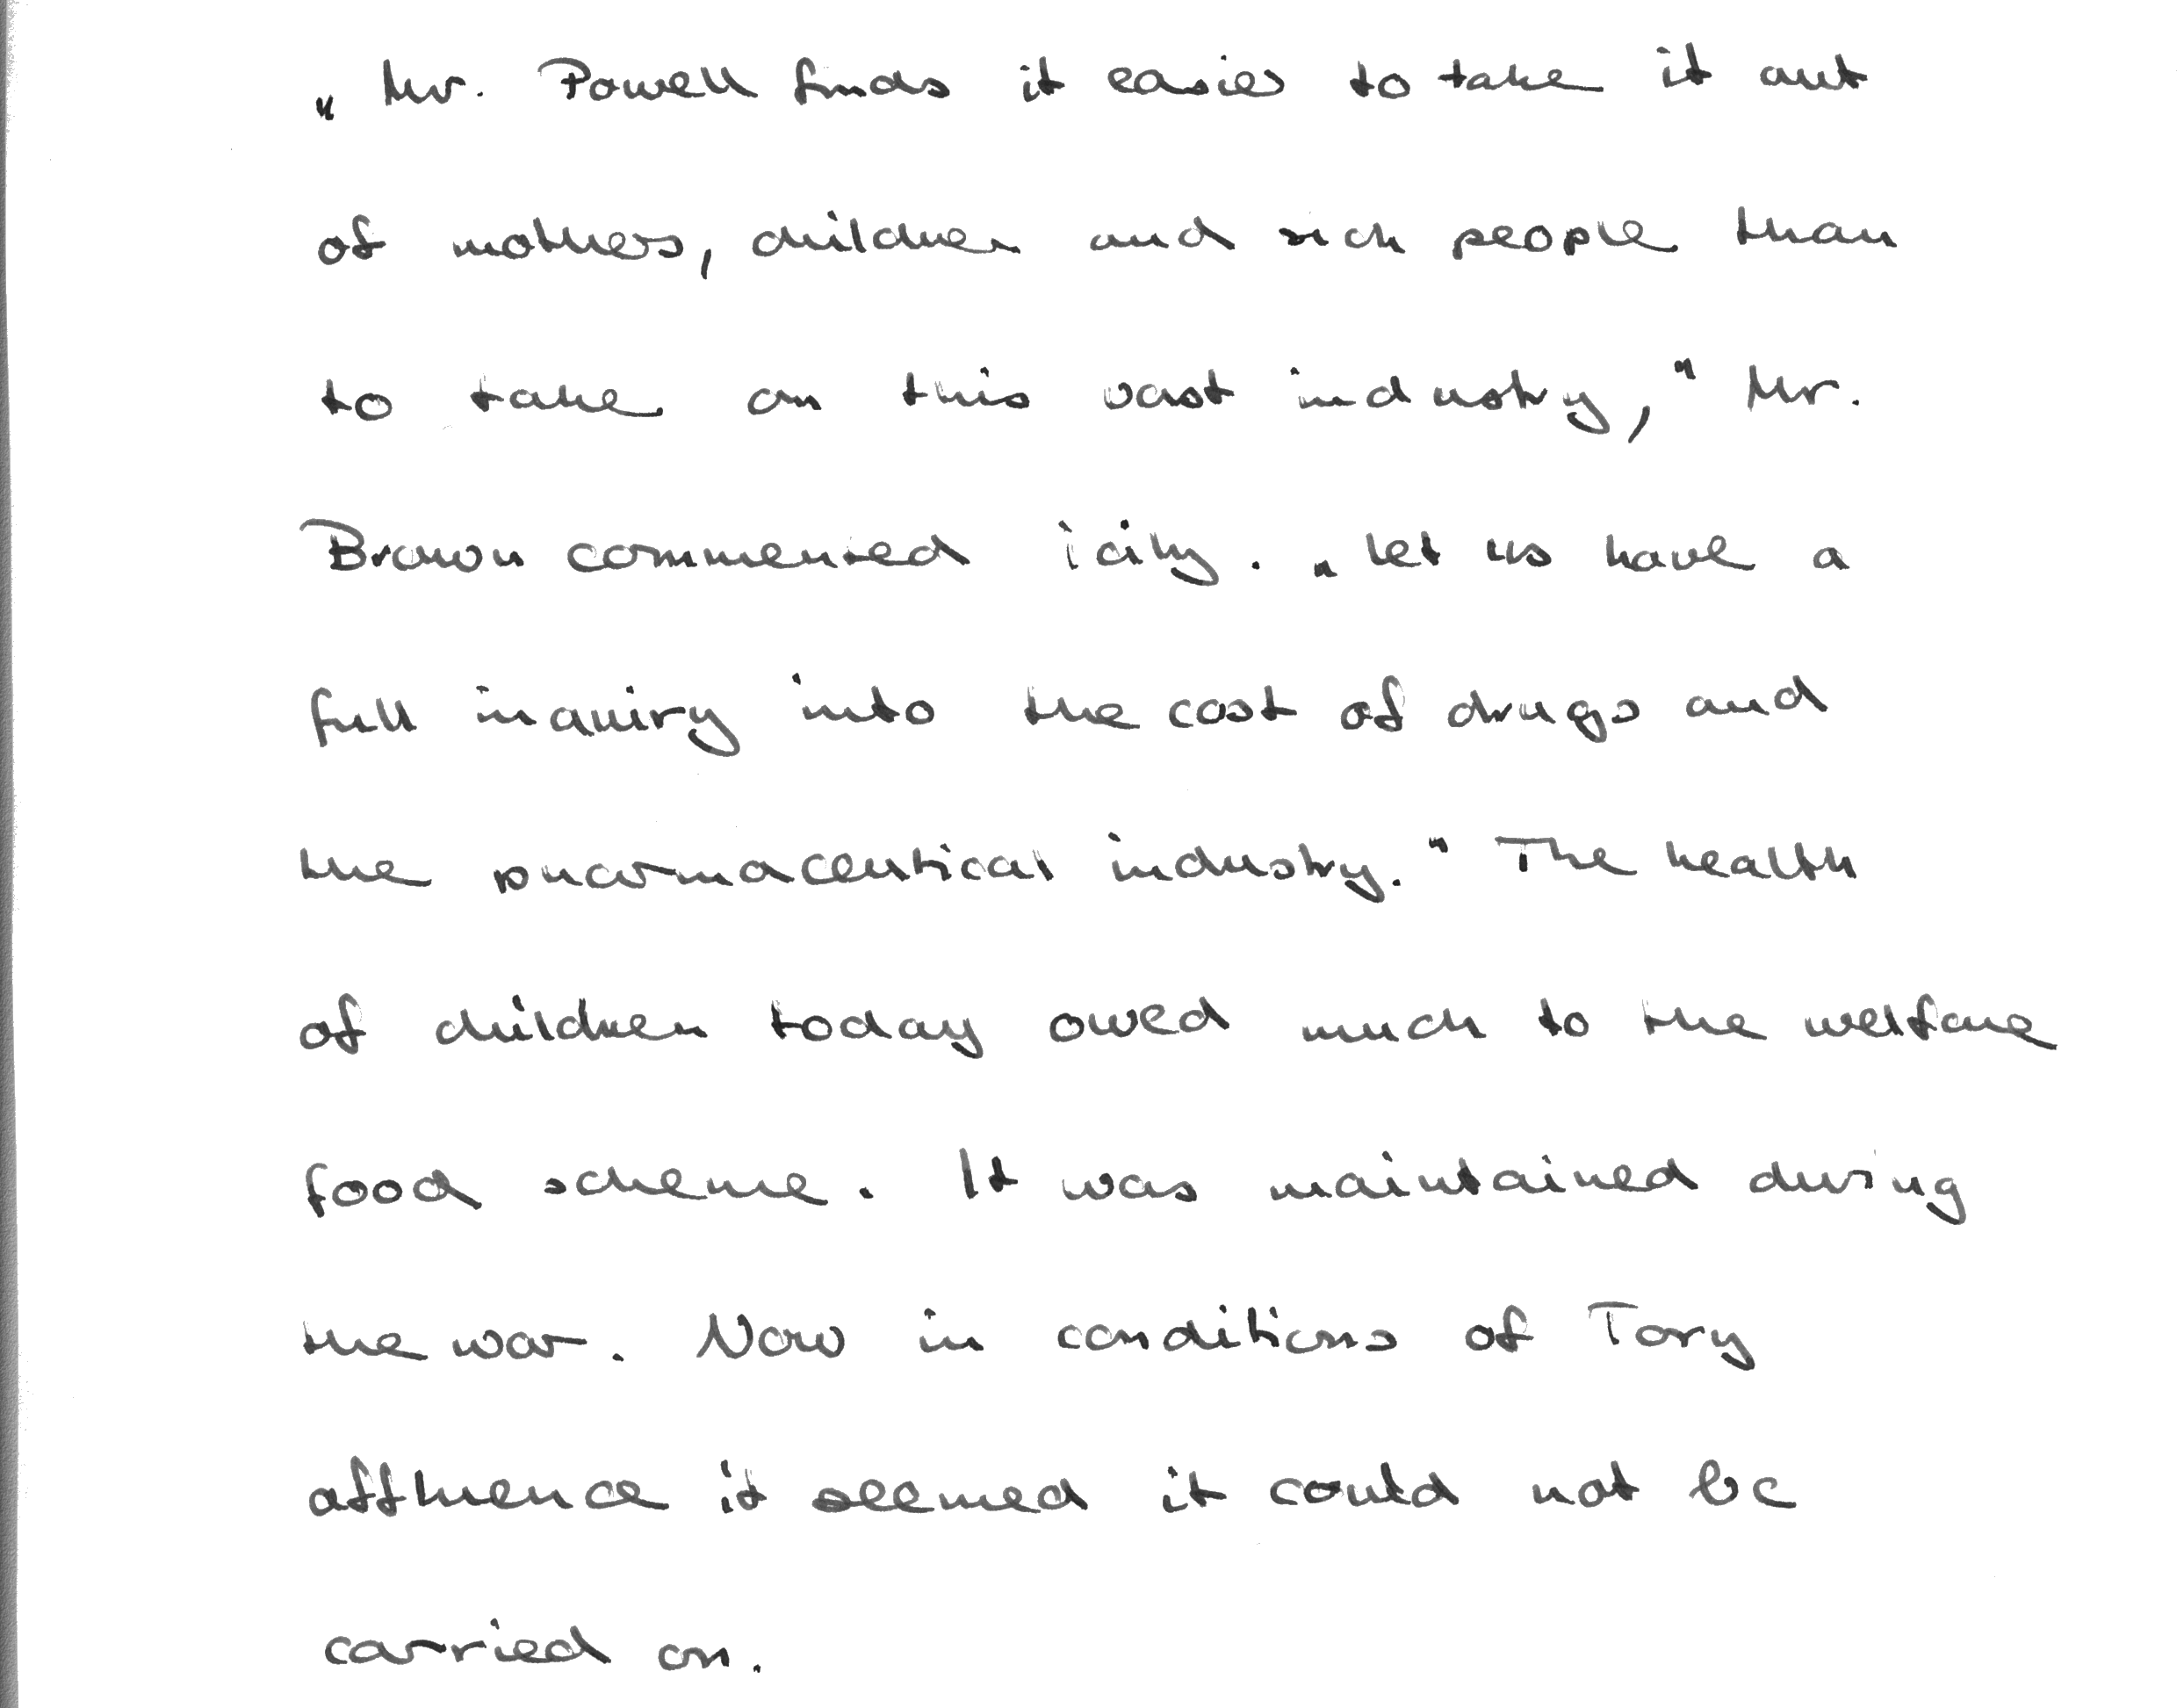 „Mr. Powell finds it easier to take it out
of mothers, children and sick people than
to take on this vast industry," Mr.
Brown commented icily. „Let us have a
full inquiry into the cost of drugs and
the pharmaceutical industry." The health
of children today owed much to the welfare
food scheme. It was maintained during
the war. Now in conditions of Tory
affluence it seemed it could not be
carried on.